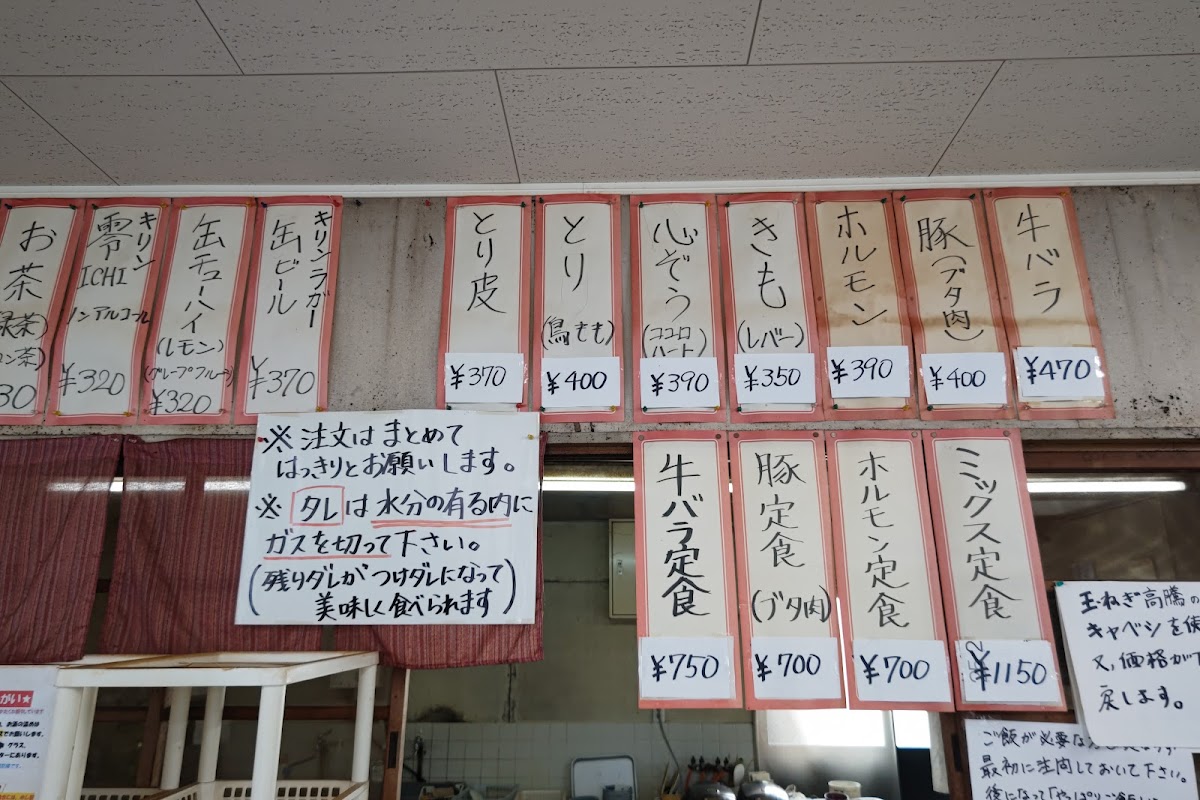 牛バラ
¥470
豚(ブタ肉)
¥400
ホルモン
¥390
きも
(レバー)
¥350
心ぞう
(ココロ
ハート)
¥390
とり
(鳥もも)
¥400
とり皮
¥370
キリンラガー
缶ビール
¥370
缶チューハイ
(レモン)
(グレープフルーツ)
¥320
キリン
零ICHI
ノンアルコール
¥320
お茶
ミックス定食
¥1150
ホルモン定食
¥700
豚定食
(ブタ肉)
¥700
牛バラ定食
¥750
※ 注文は まとめて
はっきりとお願いします。
※ タレは水分の有る内に
ガスを切って下さい。
(残りダレがつけダレになって
美味しく食べられます)
玉ねぎ高騰の
キャベツを使
又、価格が下
戻します。
ご飯が必要な
最初に注
しておいて下さい。